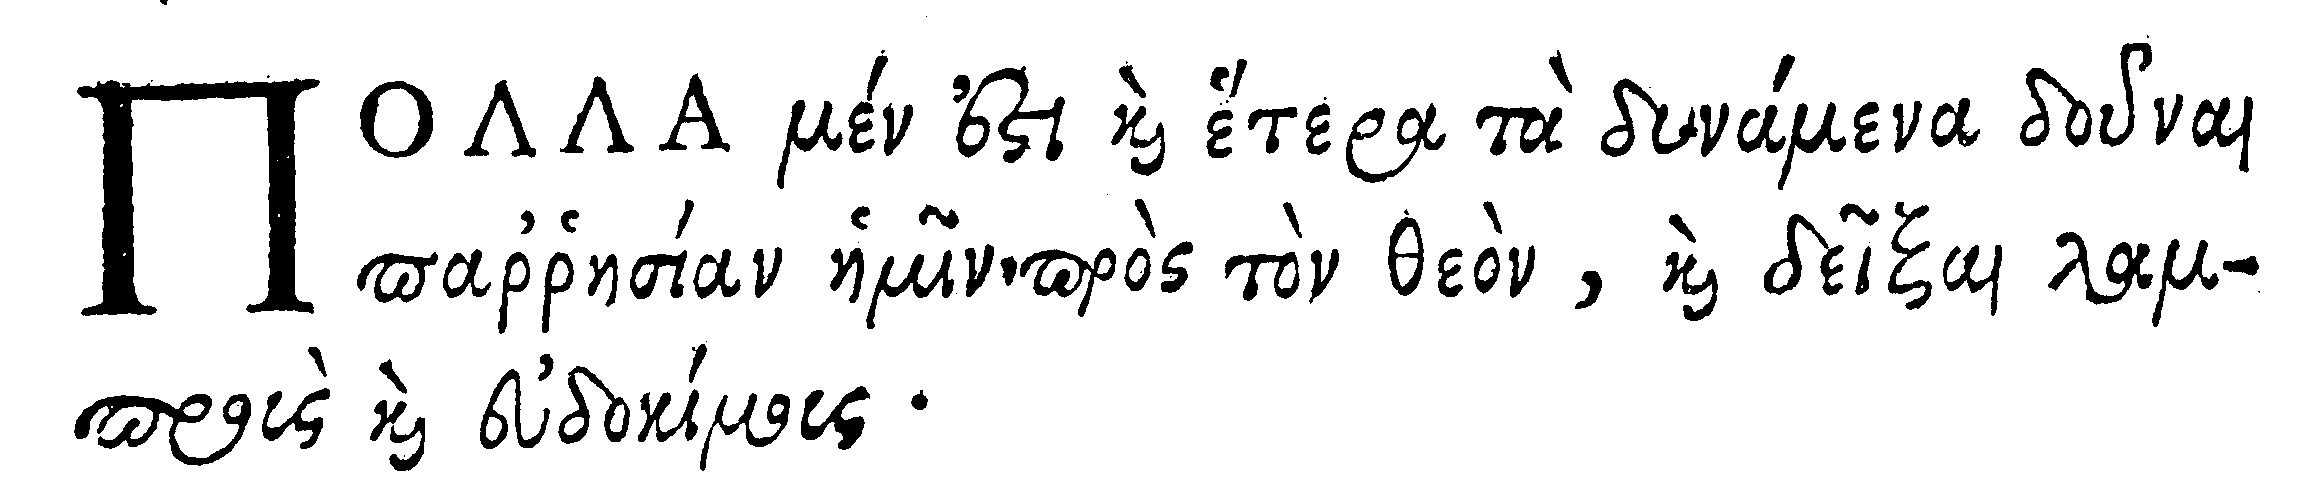 ΠΟΛΛΑ μέν ἐστι καὶ ἕτερα τὰ δυνάμενα δοῦναι
παῤῥησίαν ἡμῖν πρὸς τὸν θεὸν, καὶ δεῖξαι λαμ-
προὺς καὶ εὐδοκίμους.